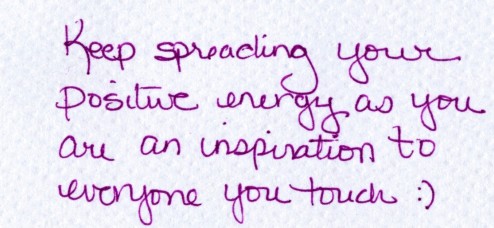 Keep spreading your
positive energy as you
are an inspiration to
everyone you touch :)